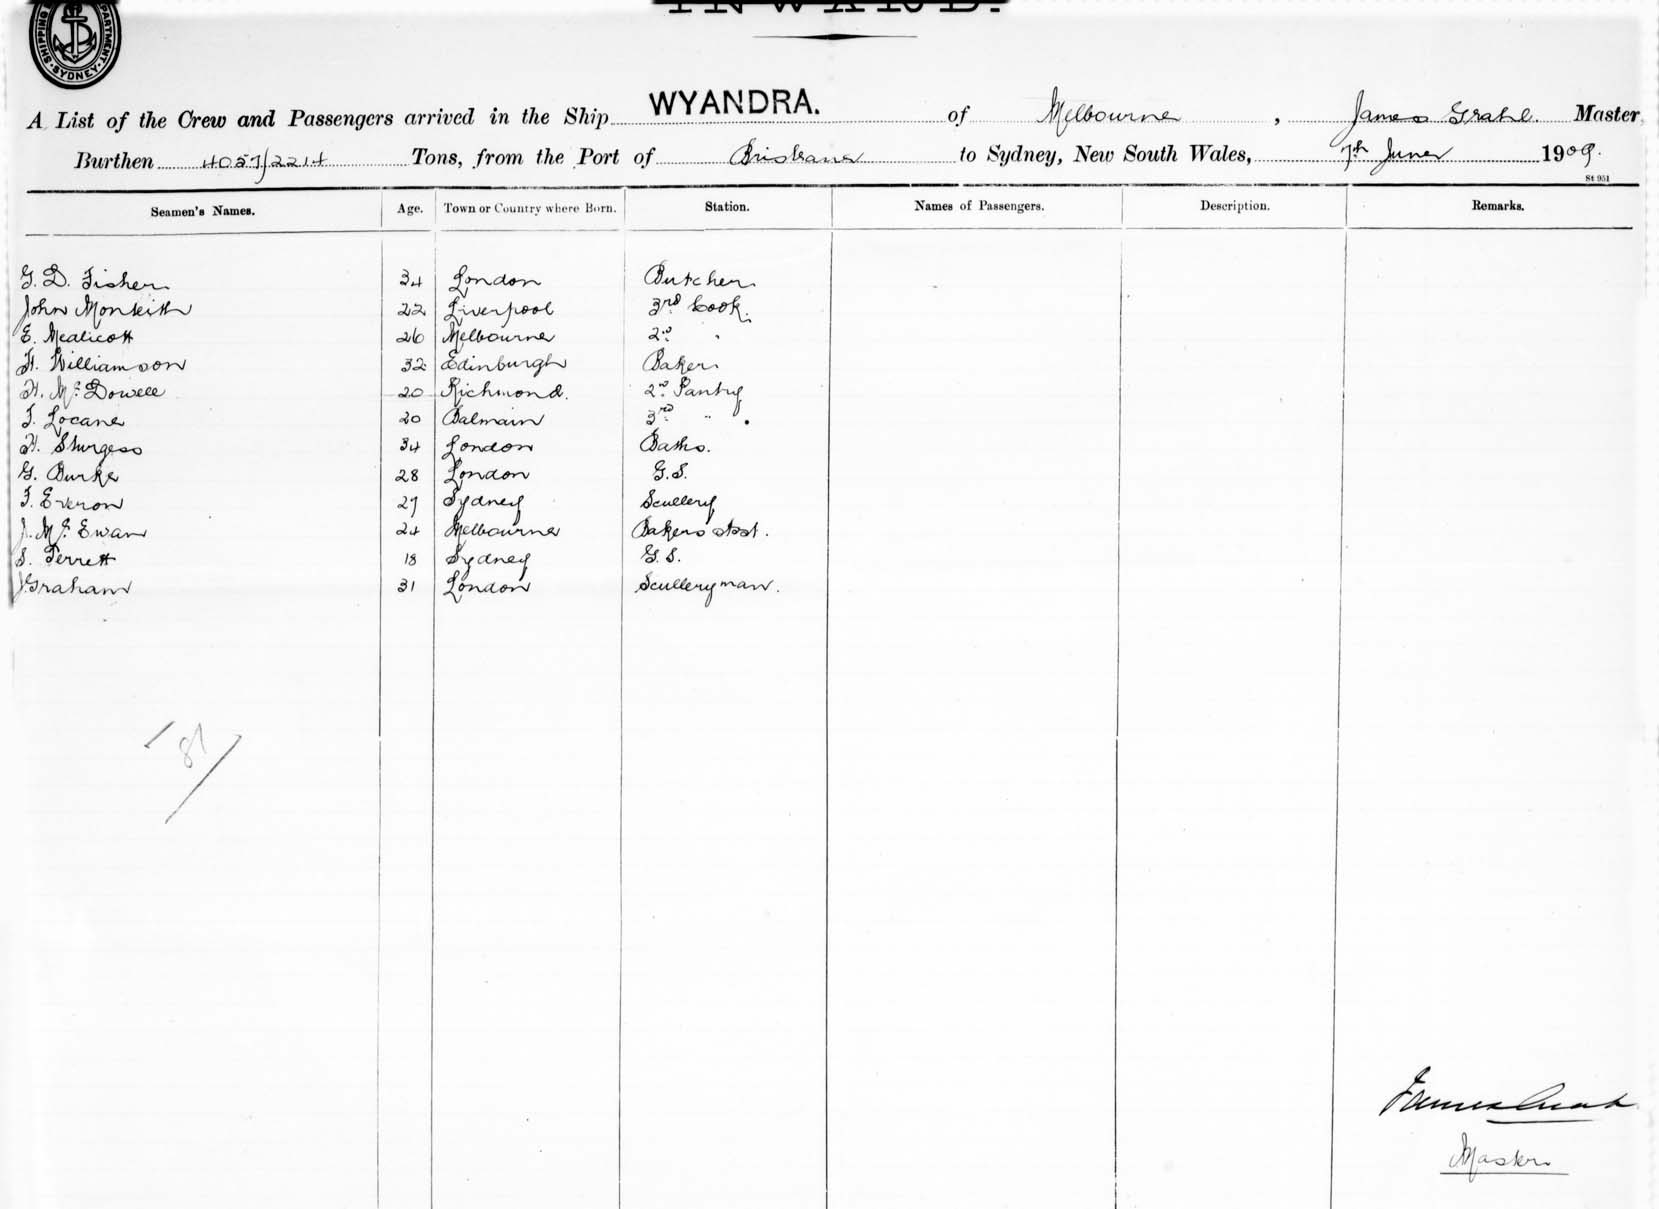 INWARD.
SHIPPING DEPARTMENT. SYDNEY.
A List of the Crew and Passengers arrived in the Ship WYANDRA. of Melbourne, James Grahl. Master,
Burthen 4057/2214 Tons, from the Port of Brisbane to Sydney, New South Wales, 7th June 1909.
St 951
Seamen's Names. Age. Town or Country where Born. Station. Names of Passengers. Description. Remarks.
G. D. Fisher 34 London Butcher
John Monkeith 22 Liverpool 3rd Cook.
E. Medlicott 26 Melbourne 2nd "
H. Williamson 32 Edinburgh Baker
H. Mc Dowell 20 Richmond. 2nd Pantry
T. Locane 20 Balmain 3rd " .
H. Sturgess 34 London Baths.
G. Burke 28 London G.S.
T. Everon 27 Sydney Scullery
J. Mc Ewan 24 Melbourne Bakers Asst.
S. Perrett 18 Sydney G.S.
J. Graham 31 London Sculleryman.
81
James Grahl
Master